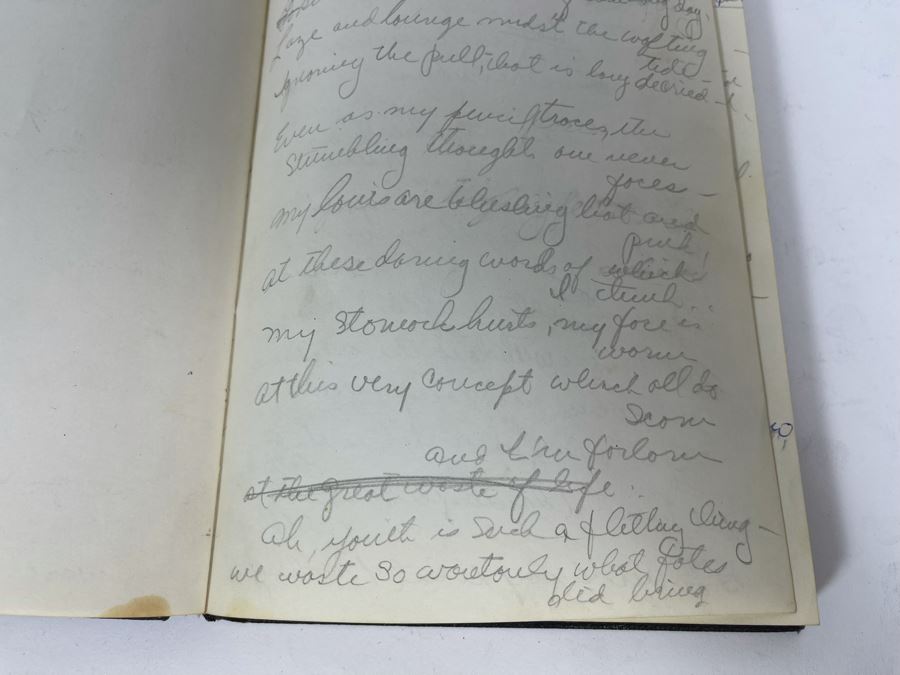 day,
Laze and lounge midst the wafting
tide -
Ignoring the pull, that is long decried -
Even as my pencil traces the
stumbling thoughts one never
faces -
my are blushing hot and
pink!
at these daring words of which
I think..
my stomach hurts, my face is
worn
at this very concept which all do
scorn
and I'm forlorn
at the great waste of life.
Ah, youth is such a fleeting thing -
we waste so wantonly what fates
did bring